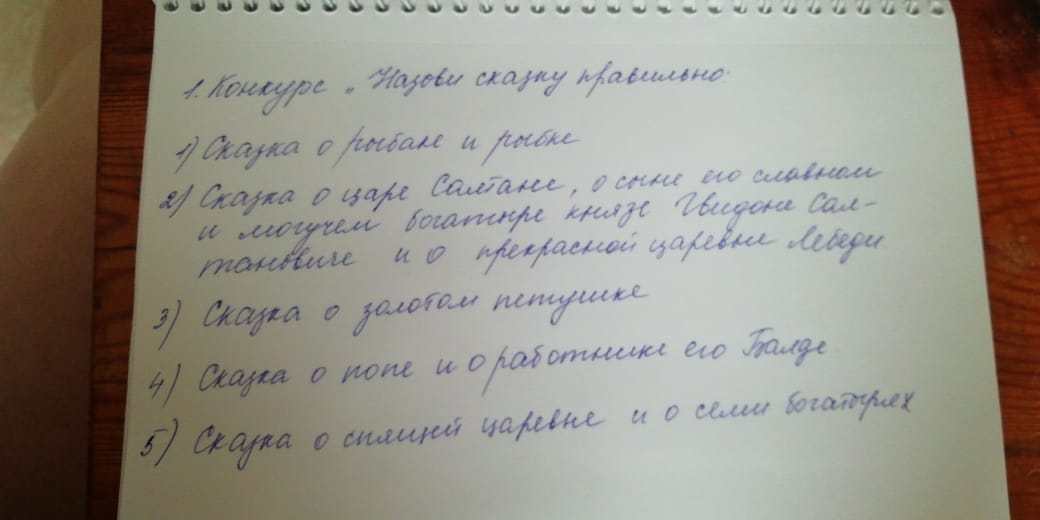 1. Конкурс „Назови сказку правильно:
1) Сказка о рыбаке и рыбке
2) Сказка о царе Салтане, о сыне его славном
и могучем богатыре князе Гвидоне Сал-
тановиче и о прекрасной царевне Лебеди.
3) Сказка о золотом петушке
4) Сказка о попе и о работнике его Балде.
5) Сказка о спящей царевне и о семи богатырях